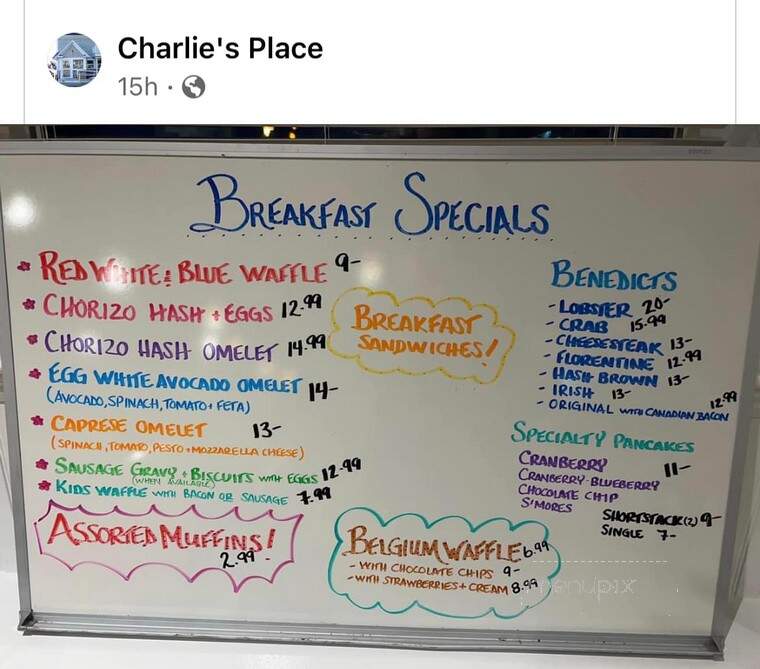 Charlie's Place
15h ·
BREAKFAST SPECIALS
RED WHITE & BLUE WAFFLE 9-
CHORIZO HASH + EGGS 12.99
CHORIZO HASH OMELET 14.99
EGG WHITE AVOCADO OMELET 14-
(AVOCADO, SPINACH, TOMATO + FETA)
CAPRESE OMELET 13-
(SPINACH, TOMATO, PESTO + MOZZARELLA CHEESE)
SAUSAGE GRAVY + BISCUITS WITH EGGS 12.99
(WHEN AVAILABLE)
KIDS WAFFLE WITH BACON OR SAUSAGE 7.99
ASSORTED MUFFINS!
2.99
BREAKFAST
SANDWICHES!
BENEDICTS
- LOBSTER 20-
- CRAB 15.99
- CHEESESTEAK 13-
- FLORENTINE 12.99
- HASH BROWN 13-
- IRISH 13-
- ORIGINAL WITH CANADIAN BACON 12.99
SPECIALTY PANCAKES
CRANBERRY 11-
CRANBERRY-BLUEBERRY
CHOCOLATE CHIP
S'MORES
SHORTSTACK (2) 9-
SINGLE 7-
BELGIUM WAFFLE 6.99
- WITH CHOCOLATE CHIPS 9-
- WITH STRAWBERRIES + CREAM 8.99
menupix